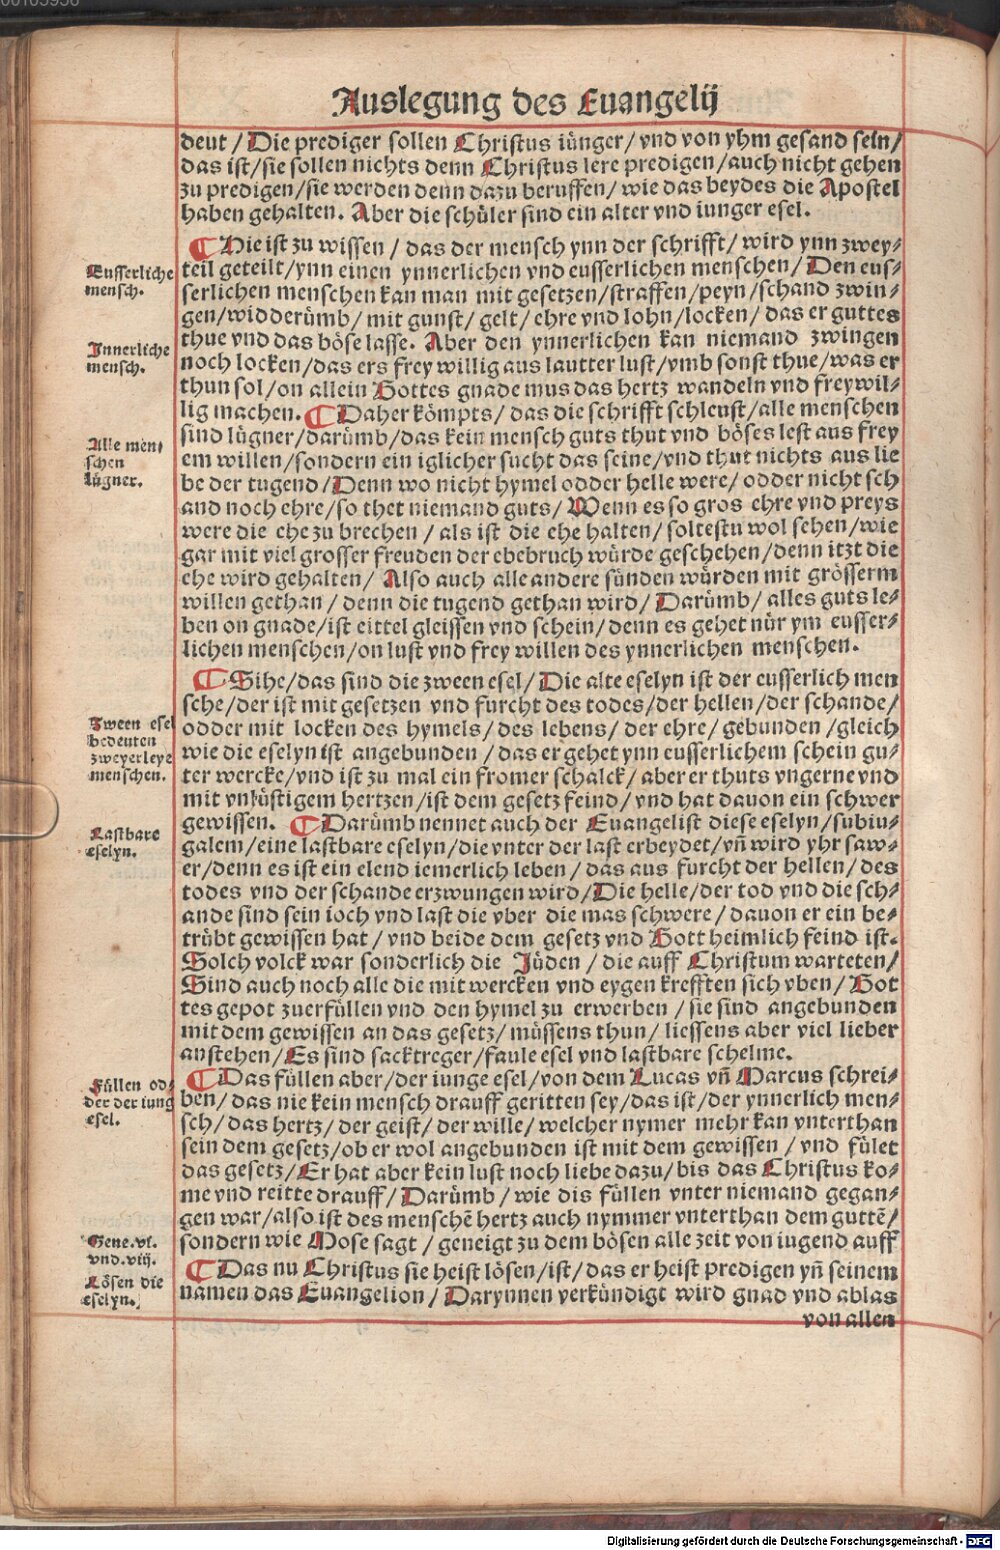 Auslegung des Euangelij
deut / Die prediger sollen Christus iünger / vnd von yhm gesand sein /
das ist / sie sollen nichts denn Christus lere predigen / auch nicht gehen
zu predigen / sie werden denn dazu beruffen / wie das beydes die Apostel
haben gehalten. Aber die schüler sind ein alter vnd iunger esel.
¶ Hie ist zu wissen / das der mensch ynn der schrifft / wird ynn zwey⸗
teil geteilt / ynn einen ynnerlichen vnd eusserlichen menschen / Den eus⸗
serlichen menschen kan man mit gesetzen / straffen / peyn / schand zwin⸗
gen / widderümb / mit gunst / gelt / ehre vnd lohn / locken / das er guttes
thue vnd das böse lasse. Aber den ynnerlichen kan niemand zwingen
noch locken / das ers frey willig aus lautter lust / vmb sonst thue / was er
thun sol / on allein Gottes gnade mus das hertz wandeln vnd freywil⸗
lig machen. ¶ Daher kömpts / das die schrifft schleust / alle menschen
sind lügner / darümb / das kein mensch guts thut vnd böses lest aus frey
em willen / sondern ein iglicher sucht das seine / vnd thut nichts aus lie
be der tugend / Denn wo nicht hymel odder helle were / odder nicht sch
and noch ehre / so thet niemand guts / Wenn es so gros ehre vnd preys
were die ehe zu brechen / als ist die ehe halten / soltestu wol sehen / wie
gar mit viel grosser freuden der ehebruch würde geschehen / denn itzt die
ehe wird gehalten / Also auch alle andere sünden würden mit grösserm
willen gethan / denn die tugend gethan wird / Darümb / alles guts le⸗
ben on gnade / ist eittel gleissen vnd schein / denn es gehet nür ym eusser⸗
lichen menschen / on lust vnd frey willen des ynnerlichen menschen.
¶ Sihe / das sind die zween esel / Die alte eselyn ist der eusserlich men
sche / der ist mit gesetzen vnd furcht des todes / der hellen / der schande /
odder mit locken des hymels / des lebens / der ehre / gebunden / gleich
wie die eselyn ist angebunden / das er gehet ynn eusserlichem schein gu⸗
ter wercke / vnd ist zu mal ein fromer schalck / aber er thuts vngerne vnd
mit vnlüstigem hertzen / ist dem gesetz feind / vnd hat dauon ein schwer
gewissen. ¶ Darümb nennet auch der Euangelist diese eselyn / subiu⸗
galem / eine lastbare eselyn / die vnter der last erbeydet / vñ wird yhr saw⸗
er / denn es ist ein elend iemerlich leben / das aus furcht der hellen / des
todes vnd der schande erzwungen wird / Die helle / der tod vnd die sch⸗
ande sind sein ioch vnd last die vber die mas schwere / dauon er ein be⸗
trübt gewissen hat / vnd beide dem gesetz vnd Gott heimlich feind ist.
Solch volck war sonderlich die Jüden / die auff Christum warteten /
Sind auch noch alle die mit wercken vnd eygen krefften sich vben / Got
tes gepot zuerfüllen vnd den hymel zu erwerben / sie sind angebunden
mit dem gewissen an das gesetz / müssens thun / liessens aber viel lieber
anstehen / Es sind sacktreger / faule esel vnd lastbare schelme.
¶ Das füllen aber / der iunge esel / von dem Lucas vñ Marcus schrei⸗
ben / das nie kein mensch drauff geritten sey / das ist / der ynnerlich men⸗
sch / das hertz / der geist / der wille / welcher nymer mehr kan vnterthan
sein dem gesetz / ob er wol angebunden ist mit dem gewissen / vnd fület
das gesetz / Er hat aber kein lust noch liebe dazu / bis das Christus ko⸗
me vnd reitte drauff / Darümb / wie dis füllen vnter niemand gegan⸗
gen war / also ist des menschē hertz auch nymmer vnterthan dem guttē /
sondern wie Mose sagt / geneigt zu dem bösen alle zeit von iugend auff
¶ Das nu Christus sie heist lösen / ist / das er heist predigen yñ seinem
namen das Euangelion / Darynnen verkündigt wird gnad vnd ablas
von allen
Eusserliche
mensch.
Innerliche
mensch.
Alle men⸗
schen
lügner.
Zween esel
bedeuten
zweyerleye
menschen.
Lastbare
eselyn.
Füllen od⸗
der der iung
esel.
Gene.vi.
vnd.viij.
Lösen die
eselyn.
Digitalisierung gefördert durch die Deutsche Forschungsgemeinschaft - DFG